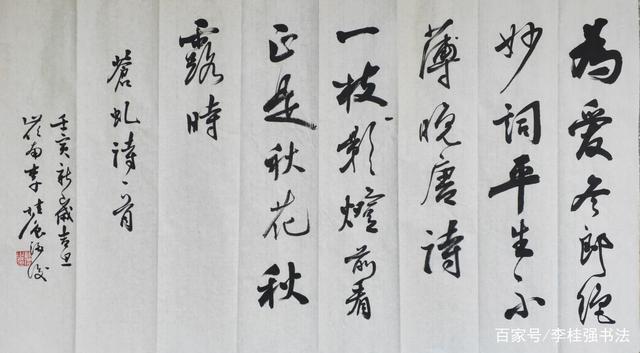 為愛冬郎絕
妙詞平生不
薄晚唐詩
一枝影燈前看
正是秋花秋
露時
蒼虬詩一首
壬寅新歲吉旦
嶺南李
百家号/李桂强书法